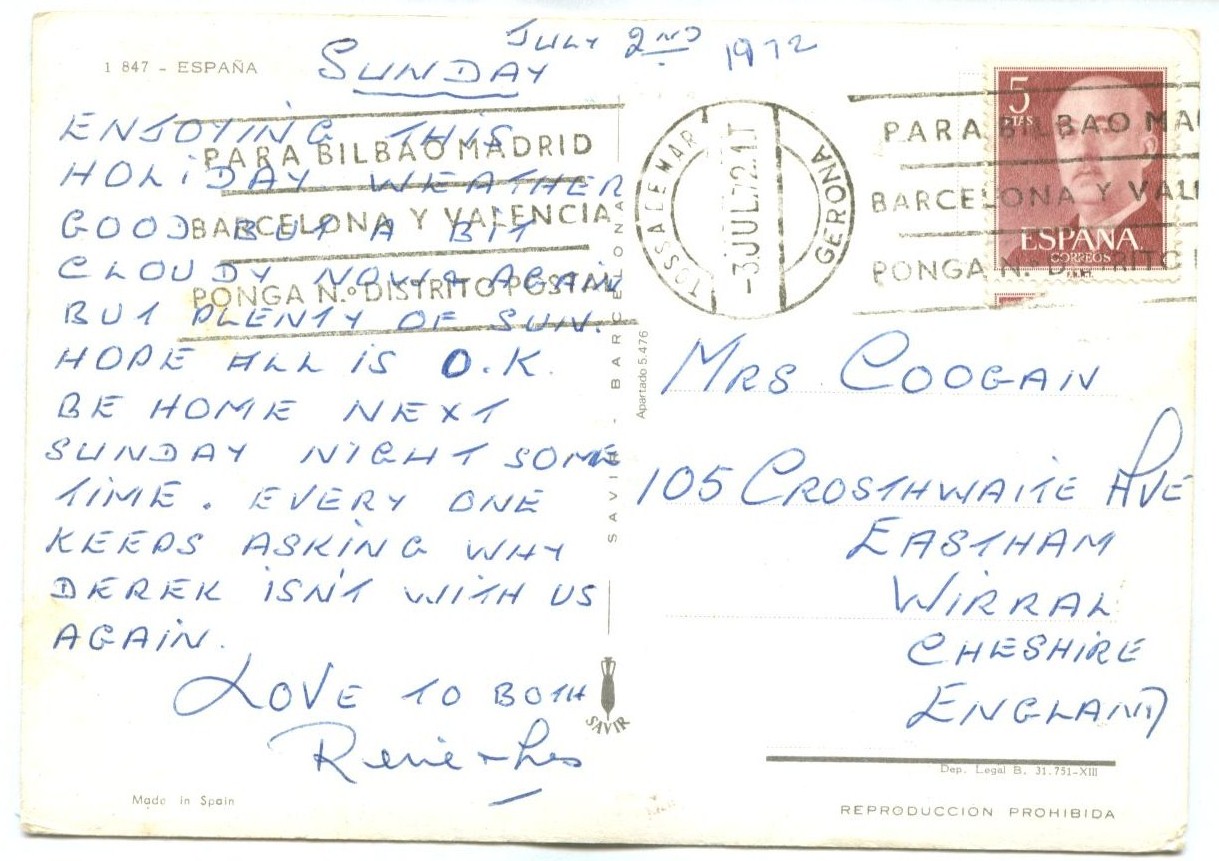 1 847 - ESPAÑA
SUNDAY JULY 2ND 1972
ENJOYING THIS
HOLIDAY WEATHER
GOOD BUT A BIT
CLOUDY NOW & AGAIN
BUT PLENTY OF SUN.
HOPE ALL IS O.K.
BE HOME NEXT
SUNDAY NIGHT SOME
TIME. EVERY ONE
KEEPS ASKING WHY
DEREK ISN'T WITH US
AGAIN.
LOVE TO BOTH
Rene + Les
Made in Spain
PARA BILBAO MADRID
BARCELONA Y VALENCIA
PONGA N.º DISTRITO POSTAL
SAVIR - BARCELONA
Apartado 5.476
SAVIR
TOSSA DE MAR
GERONA
-3 JUL.72.1T
PARA BILBAO MA
BARCELONA Y VAL
PONGA N.º DISTRITO
5
PTAS
ESPAÑA
CORREOS
MRS. COOGAN
105 CROSTHWAITE AVE
EASTHAM
WIRRAL
CHESHIRE
ENGLAND
Dep. Legal B. 31.751-XIII
REPRODUCCION PROHIBIDA